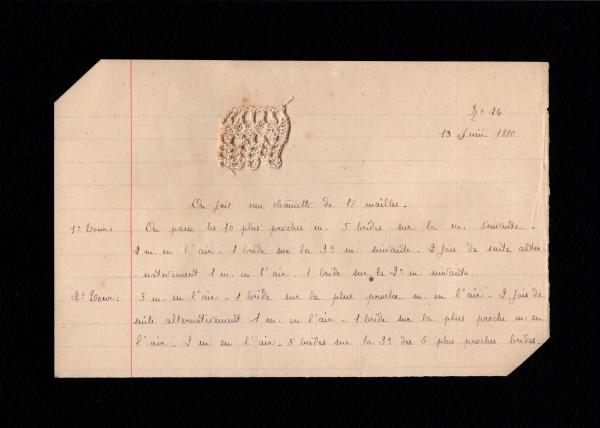 Nº 24
13 Juin 1880
On fait une chaînette de 18 mailles.
1º Tour: On passe les 10 plus proches m. 5 brides sur la m. suivante.
2 m. en l'air. 1 bride sur la 3º m. suivante. 2 fois de suite alter-
nativement 1 m. en l'air. 1 bride sur la 2º m. suivante.
2º Tour: 5 m. en l'air. 1 bride sur la plus proche m. en l'air. 2 fois de
suite alternativement 1 m. en l'air. 1 bride sur la plus proche m. en
l'air. 2 m. en l'air. 5 brides sur la 3º des 5 plus proches brides.